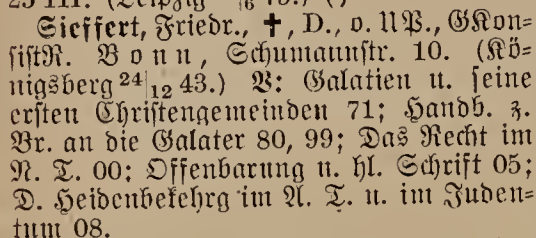 Sieffert, Friedr., ✝, D., o. UP., GKon=
sistR. Bonn, Schumannstr. 10. (Kö=
nigsberg 24|12 43.) V: Galatien u. seine
ersten Christengemeinden 71; Handb. z.
Br. an die Galater 80, 99; Das Recht im
N. T. 00; Offenbarung u. hl. Schrift 05;
D. Heidenbekehrg im A. T. u. im Juden=
tum 08.